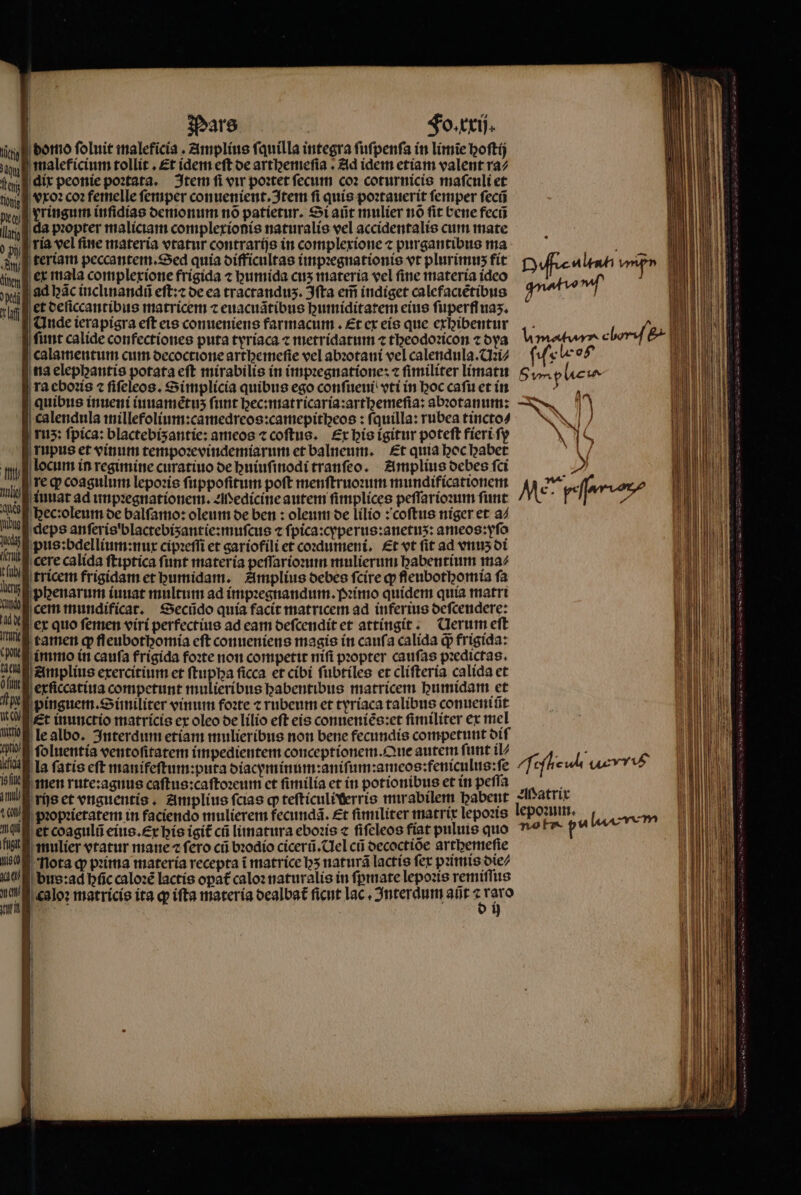 Pars Fo.xxij.
domo soluit maleficia . Amplius squilla integra suspensa in limie hostij
maleficium tollit . Et idem est de arthemesia . Ad idem etiam valent ra⸗
dix peonie poꝛtata. Item si vir poꝛtet secum coꝛ coturnicis masculi et
vxoꝛ coꝛ femelle semper conuenient. Item si quis poꝛtauerit semper secũ
yringum insidias demonum nõ patietur. Si aũt mulier nõ sit bene fecũ
da pꝛopter maliciam complexionis naturalis vel accidentalis cum mate
ria vel sine materia vtatur contrarijs in complexione ⁊ purgantibus ma
teriam peccantem. Sed quia difficultas impꝛegnationis vt plurimuꝫ fit
ex mala complexione frigida ⁊ humida cuꝫ materia vel sine materia ideo
ad hãc inclinandũ est: ⁊ de ea tractanduꝫ. Ista em̃ indiget calefaciẽtibus
et desiccantibus matricem ⁊ euacuãtibus humiditatem eius superfluaꝫ.
Unde ierapigra est eis conueniens farmacum . Et ex eis que exhibentur
sunt calide confectiones puta tyriaca ⁊ metridatum ⁊ theodoꝛicon ⁊ dya
calamentum cum decoctione arthemesie vel abꝛotani vel calendula. Uri⸗
na elephantis potata est mirabilis in impꝛegnatione: ⁊ similiter limatu
ra eboꝛis ⁊ siseleos. Simplicia quibus ego consueui vti in hoc casu et in
quibus inueni iuuamẽtuꝫ sunt hec: matricaria: arthemesia: abꝛotanum:
calendula millefolium: camedreos: camepitheos : squilla: rubea tincto⸗
ruꝫ: spica: blactebiꝫantie: ameos ⁊ costus. Ex his igitur potest fieri sy
rupus et vinum tempoꝛe vindemiarum et balneum. Et quia hoc habet
locum in regimine curatiuo de huiusmodi transeo. Amplius debes sci
re ꝙ coagulum lepoꝛis suppositum post menstruoꝛum mundificationem
iuuat ad impꝛegnationem. Medicine autem simplices pessarioꝛum sunt
hec: oleum de balsamo: oleum de ben : oleum de lilio : costus niger et a⸗
deps anseris blactebiꝫantie: muscus ⁊ spica: cyperus: anetuꝫ: ameos: yso
pus: bdellium: nux cipꝛessi et gariofili et coꝛdumeni. Et vt sit ad vnuꝫ di
cere calida stiptica sunt materia pessarioꝛum mulierum habentium ma⸗
tricem frigidam et humidam. Amplius debes scire ꝙ fleubothomia sa
phenarum iuuat multum ad impꝛegnandum. Pꝛimo quidem quia matri
cem mundificat. Secũdo quia facit matricem ad inferius descendere:
ex quo semen viri perfectius ad eam descendit et attingit. Uerum est
tamen ꝙ fleubothomia est conueniens magis in causa calida ꝙ̃ frigida:
immo in causa frigida foꝛte non competit nisi pꝛopter causas pꝛedictas.
Amplius exercitium et stupha sicca et cibi subtiles et clisteria calida et
exsiccatiua competunt mulieribus habentibus matricem humidam et
pinguem. Similiter vinum foꝛte ⁊ rubeum et tyriaca talibus conueniũt
Et inunctio matricis ex oleo de lilio est eis conueniẽs: et similiter ex mel
le albo. Interdum etiam mulieribus non bene fecundis competunt dis
soluentia ventositatem impedientem conceptionem. Que autem sunt il⸗
la satis est manifestum: puta diacyminum: anisum: ameos: feniculus: se
men rute: agnus castus: castoꝛeum et similia et in potionibus et in pessa
rijs et vnguentis . Amplius scias ꝙ testiculi verris mirabilem habent
pꝛopꝛietatem in faciendo mulierem fecundã. Et similiter matrix lepoꝛis
et coagulũ eius. Ex his igit̃ cũ limatura eboꝛis ⁊ siseleos fiat puluis quo
mulier vtatur mane ⁊ sero cũ bꝛodio cicerũ. Uel cũ decoctiõe arthemesie
Nota ꝙ pꝛima materia recepta ĩ matrice hꝫ naturã lactis sex pꝛimis die⸗
bus: ad hũc caloꝛẽ lactis opat̃ caloꝛ naturalis in spmate lepoꝛis remissus
caloꝛ matricis ita ꝙ ista materia dealbat̃ sicut lac . Interdum aũt ⁊ raro
d ij
Difficultati impr
gnationis
limatura eboris &
siseleos
Simplicia
Me. pessariorum
Testiculi verris
Matrix
lepoꝛum.
nota puluerem